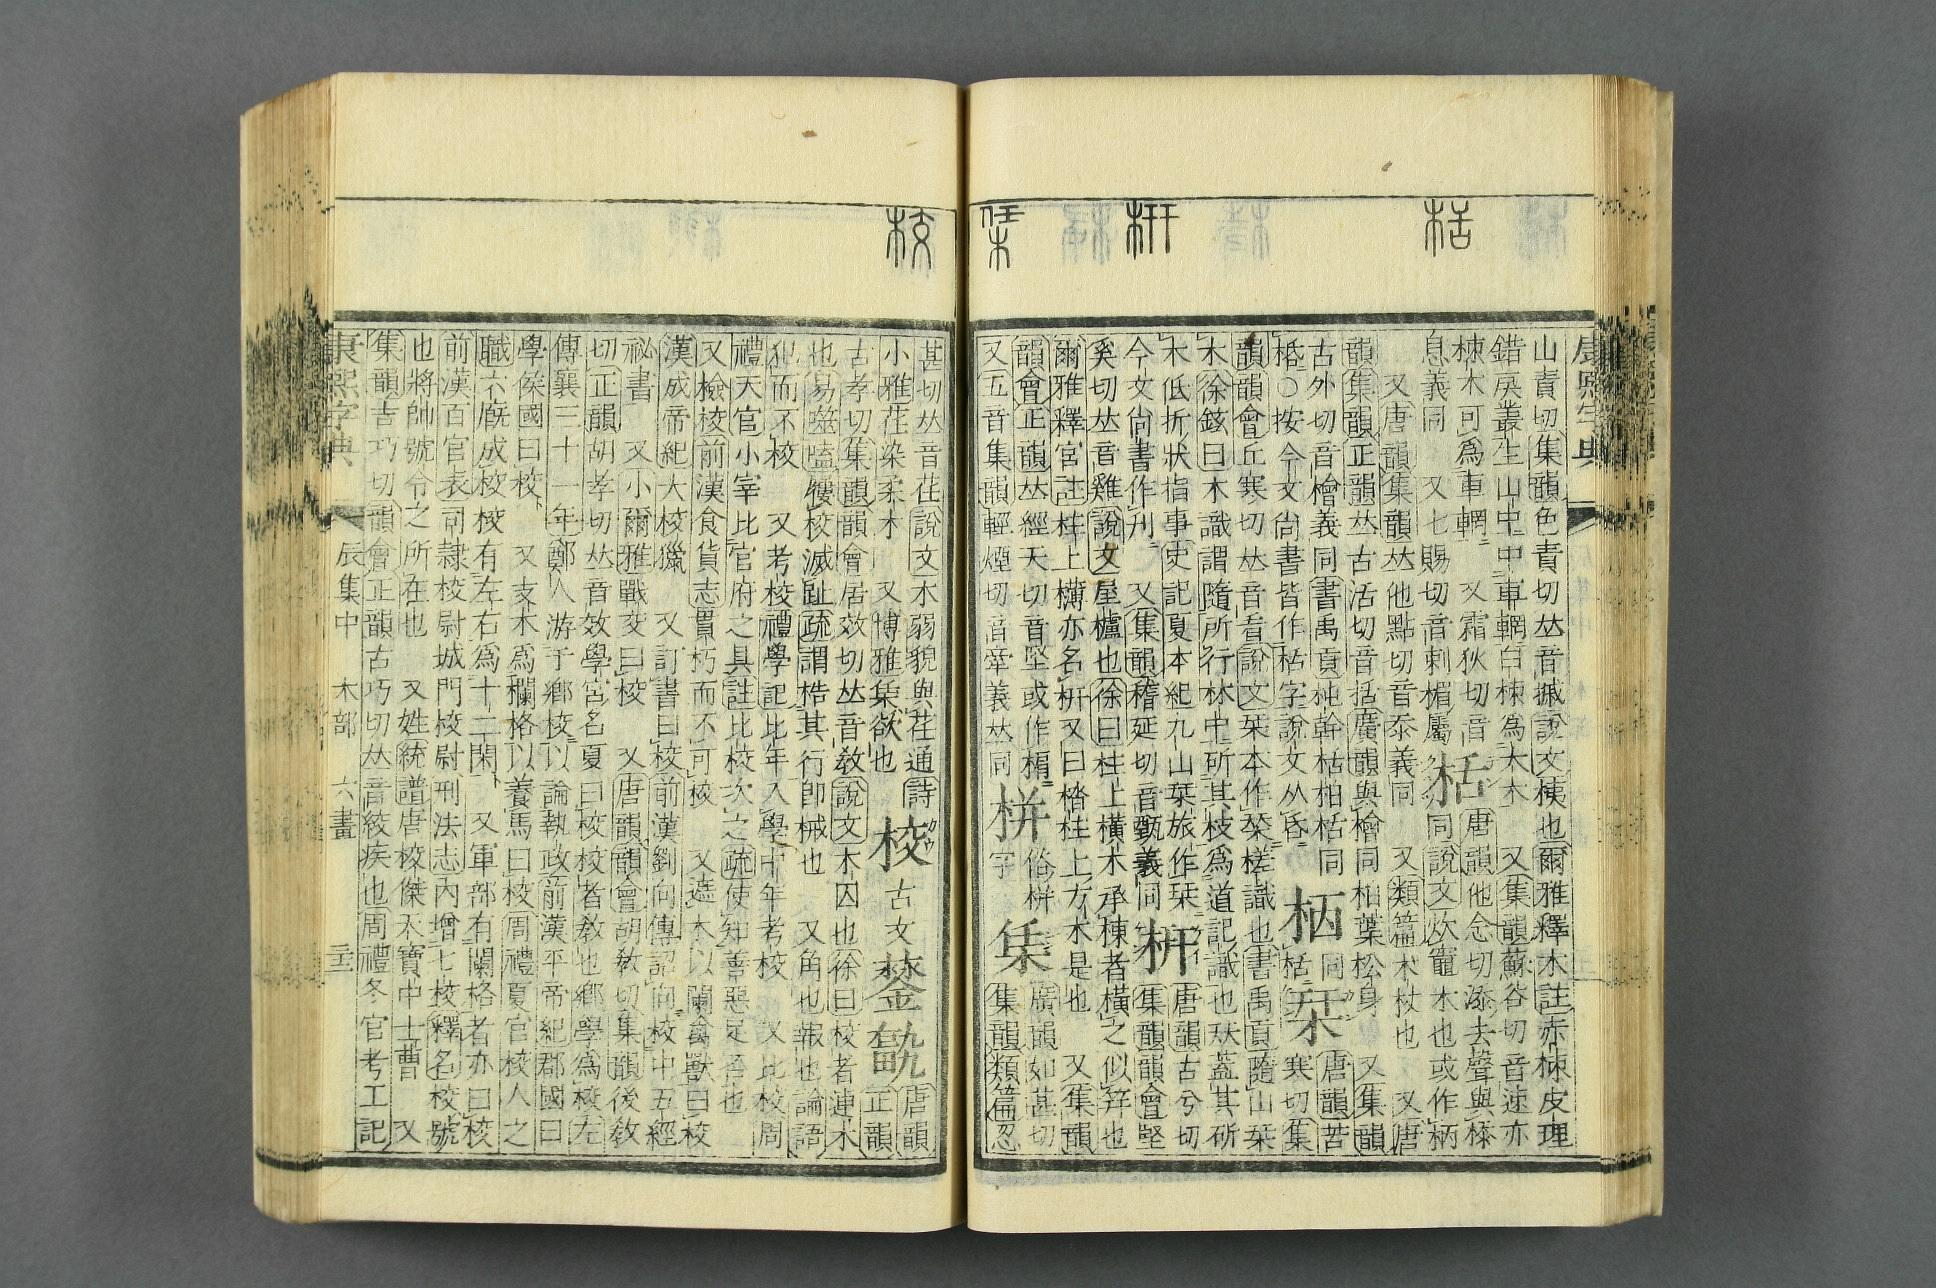 栝
枅
栠
校
康熙字典
山責切集韻色責切𠀤音摵說文桋也爾雅釋木註赤棟皮理
錯戾叢生山中中車輞白棟爲大木 又集韻蘇谷切音速亦
棟木可爲車輞 又霜狄切音
息義同 又七賜切音刺楣屬
栝
唐韻他念切添去聲與㮇
同說文炊竈木也或作栖
又唐韻集韻𠀤他點切音忝義同 又類篇木杖也 又唐
韻集韻正韻𠀤古活切音括廣韻與檜同柏葉松身 又集韻
古外切音檜義同書禹貢杶幹栝柏栝同
柢〇按今文尙書皆作栝字說文从𠯑
栖
同栝
栞
唐韻苦
寒切集
韻韻會丘寒切𠀤音看說文栞本作㮳槎識也書禹貢隨山栞
木徐鉉曰木識謂隨所行林中所其枝爲道記識也㺲蓋其硏
木低折狀指事史記夏本紀九山栞旅作栞
今文尙書作刋 又集韻稽延切音甄義同
枅
唐韻古兮切
集韻韻會堅
奚切𠀤音雞說文屋櫨也徐曰柱上橫木承棟者橫之似筓也
爾雅釋宮註柱上欂亦名枅又曰㭼柱上方木是也 又集韻
韻會正韻𠀤經天切音堅或作楄
又五音集韻輕煙切音牽義𠀤同
栟
俗栟
字
栠
廣韻如甚切
集韻類篇忍
甚切𠀤音荏說文木弱貌與荏通詩
小雅荏染柔木 又博雅栠欲也
校
古文
𨨶
𣪊
唐韻
正韻
古孝切集韻韻會居效切𠀤音敎說文木囚也徐曰校者連木
也易噬嗑屨校滅趾疏謂桎其行卽械也 又角也報也論語
犯而不校 又考校禮學記比年入學中年考校 又比校周
禮天官小宰比官府之具註比校次之疏使知善惡足否也
又檢校前漢食貨志貫朽而不可校 又遮木以闌禽獸曰校
漢成帝紀大校獵 又訂書曰校前漢劉向傳詔向校中五經
祕書 又小爾雅戰交曰校 又唐韻韻會胡敎切集韻後敎
切正韻胡孝切𠀤音效學宮名夏曰校校者敎也鄕學爲校左
傳襄三十一年鄭人游于鄕校以論執政前漢平帝紀郡國曰
學侯國曰校 又支木爲欄格以養馬曰校周禮夏官校人之
職六廐成校校有左右爲十二閑 又軍部有闌格者亦曰校
前漢百官表司隸校尉城門校尉刑法志內增七校釋名校號
也將帥號令之所在也 又姓統譜唐校傑天寶中士曹 又
集韻吉巧切韻會正韻古巧切𠀤音絞疾也周禮冬官考工記
康熙字典 辰集中 木部 六畫